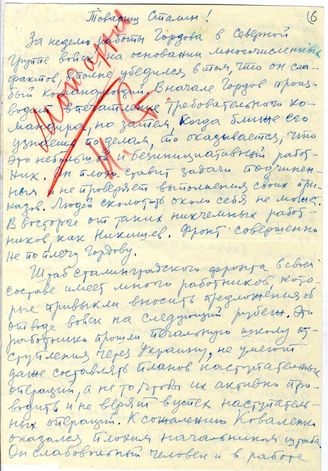 6
Товарищ Сталин!
За неделю работы Гордова в Северной
группе войск, на основании многочисленных
фактов, вполне убедился в том, что он сла-
бый командующий. Вначале Гордов произ-
водит впечатление требовательного ко-
мандира, но затем, когда ближе его
узнаешь по делам, то оказывается, что
это небольшой и безинициативный работ-
ник. Он плохо ставит задачи подчинен-
ным и не проверяет выполнения своих при-
казов. Людей сколотить около себя не может.
В восторге от таких никчемных работ-
ников, как Никишев. Фронт совершенно
не по плечу Гордову.
Штаб Сталинградского фронта в своем
составе имеет много работников, кото-
рые привыкли вносить предложения об
отводе войск на следующий рубеж. Эти
работники прошли печальную школу от-
ступления через Украину, не умеют
даже составлять планов наступательных
операций, а не то, чтобы их активно про-
водить и не верят в успех наступатель-
ных операций. К сожалению Коваленко
оказался плохим начальником штаба.
Он слабовольный человек и в работе